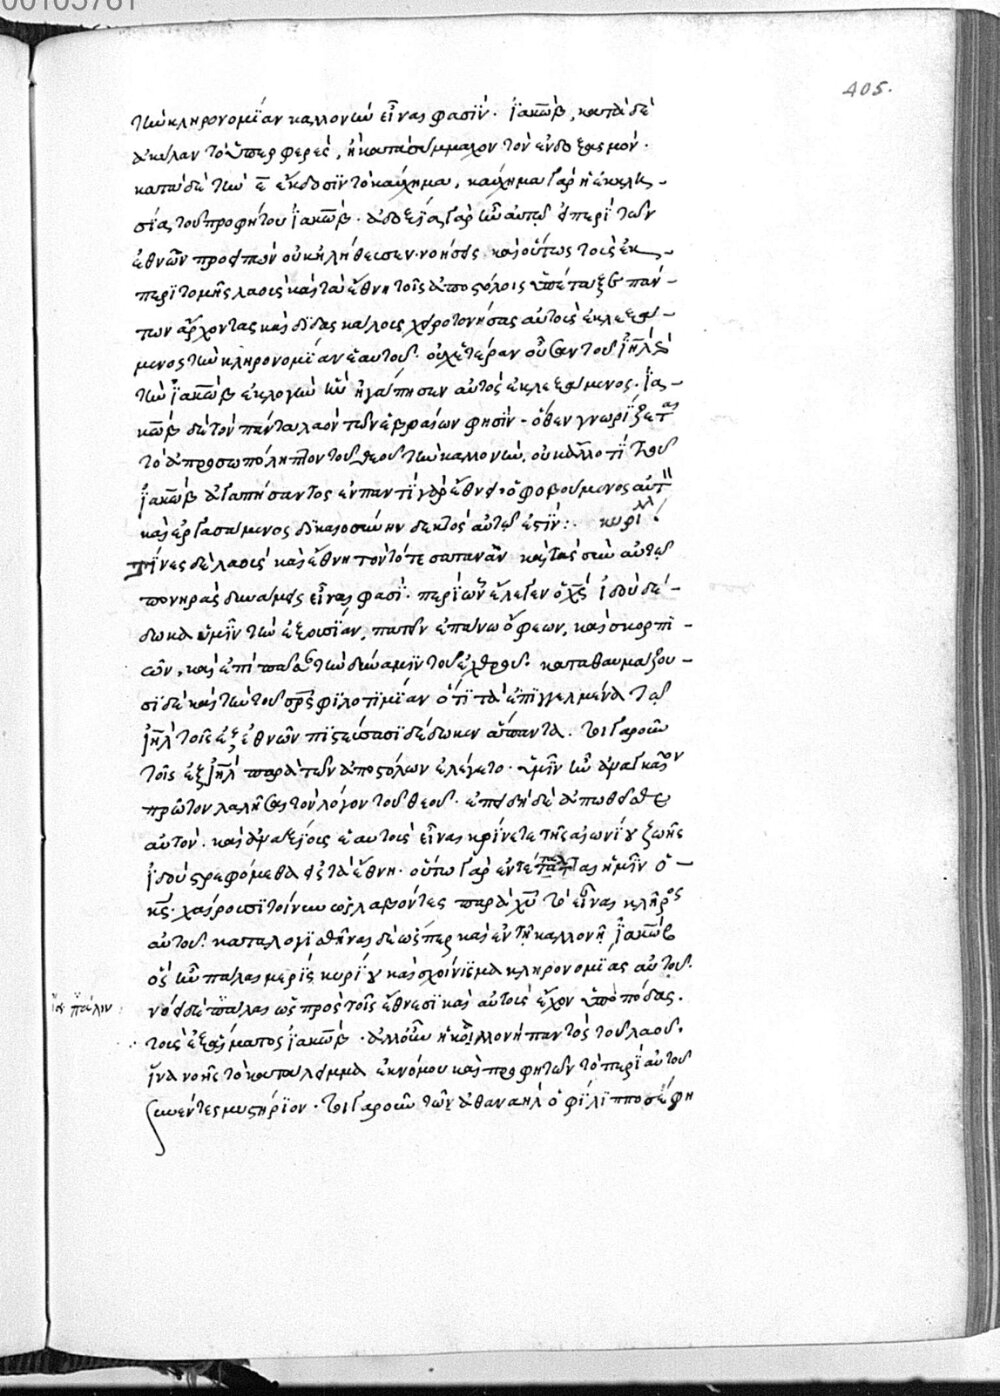 405.
τὴν κληρονομΐαν καλλονὴν εἶναι φασΐν. ἰακὼβ, κατὰ δὲ
ἀκύλαν τὸ ὑπερφερὲς, ἢ κατὰ σύμμαχον τὸν ἐνδοξασμόν.
κατὰ δὲ τὴν ε̄ ἔκδοσϊν τὸ καύχημα, καύχημα γὰρ ἡ ἐκκλη-
σία τοῦ προφήτου ἰακὼβ. ἀδοξία γὰρ ἦν αὐτῷ ἡ περὶ τῶν
ἐθνῶν πρόρρησις οὐκ
περϊτομῆς λαοὺς καὶ τὰ ἔθνη τοῖς ἀποστόλοις ὑπέταξε πάν-
των ἄρχοντας καὶ διδασκάλους χειροτονήσας αὐτοὺς ἐκλεξά-
μενος τὴν κληρονομΐαν ἑαυτοῦ. οὐχ ἑτέραν οὖσαν τοῦ ἰη̅λ
τὴν ἰακὼβ ἐκλογὴν ἣν ἠγάπησεν αὐτὸς ἐκλεξάμενος. ἰα-
κὼβ δὲ τὸν πάντα λαὸν τῶν ἑβραίων φησὶν. ὅθεν γνωρΐζεται
τὸ ἀπροσωπόληπτον τοῦ θεοῦ τὴν καλλονὴν, οὐκ ἄλλο τΐ τοῦ
ἰακὼβ ἀγαπήσαντος ἐν παντΐ γὰρ ἔθνει ὁ φοβούμενος αὐτὸν
καὶ ἐργασάμενος δϊκαιοσύνην δεκτὸς αὐτῷ ἐστΐν:. κυρίλλ
τινὲς δὲ λαοὺς καὶ ἔθνη τὸν τότε σατανᾶν καὶ τὰς σὺν αὐτῷ
πονηρὰς δυνάμεις εἶναι φασΐ. περΐ ὧν ἔλεγεν ὁ χς̅ ἰδοὺ δέ-
δωκα ὑμῖν τὴν ἐξουσΐαν, πατεῖν ἐπάνω ὄφεων, καὶ σκορπΐ-
ων, καὶ ἐπΐ πᾶσαν τὴν δύναμϊν τοῦ ἐχθροῦ. καταθαυμάζου-
σΐ δὲ καὶ τὴν τοῦ σρ̅ς φϊλοτϊμΐαν ὅτΐ τὰ ἐπϊγγελμένα τῷ
ἰη̅λ τοῖς ἐξ ἐθνῶν πϊστεύσασϊ δέδωκεν ἅπαντα. τί γαροῦν
τοῖς ἐξ ἰη̅λ παρὰ τῶν ἀποστόλων ἐλέγετο. ὑμῖν ἦν ἀναγκαῖον
πρῶτον λαλῆσαι τὸν λόγον τοῦ θεοῦ. ἐπειδὴ δὲ ἀπωθεῖσθε
αὐτὸν. καὶ ἀναξίους ἑαυτοὺς εἶναι κρίνετε τῆς αἰωνΐου ζωῆς
ἰδοὺ στρεφόμεθα εἰς τὰ ἔθνη. οὕτω γὰρ ἐντέταλται ἡμῖν ὁ
κς̅. χαίρουσϊ τοίνυν ὡς λαβόντες παρὰ χυ̅ τὸ εἶναι κλῆρος
αὐτοῦ. καταλογϊσθῆναι δὲ ὥσπερ καὶ ἐν τῇ καλλονῇ ἰακὼβ
ὃς ἦν πάλαι μερὶς κυρΐου καὶ σχοίνϊσμα κληρονομΐας αὐτοῦ.
ἰω πάλιν
πάλαι ὡς πρὸς τοῖς ἔθνεσϊ καὶ αὐτοὺς εἶχον ὑπὸ πόδας.
τοὺς ἐξ αἵματος ἰακὼβ. ἀλλ' οὖν ἡ καλλονὴ παντὸς τοῦ λαοῦ.
ἵνα νοῇς τὸ κατάλειμμα ἐκ νόμου καὶ προφητῶν τὸ περΐ αὐτοῦ
συνέντες μυστήρϊον. τί γαροῦν τῶν ἀθαναὴλ ὁ φίλϊππος ἔφη